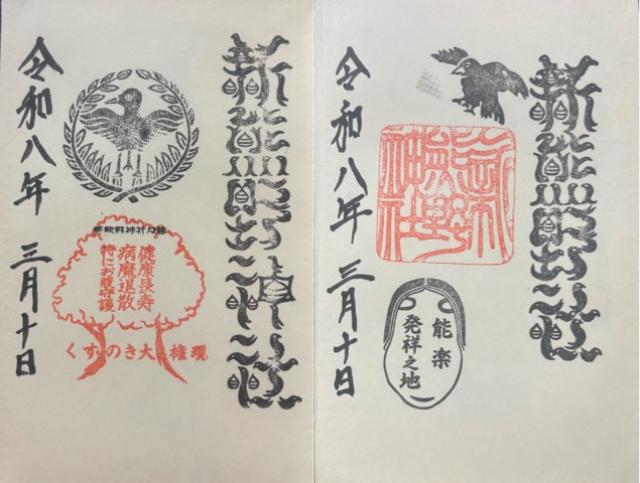 新熊野神社
新熊野神社
能楽
発祥之地
令和八年 三月十日
健康長寿
病魔退散
特にお腹守護
くすのき大権現
令和八年 三月十日